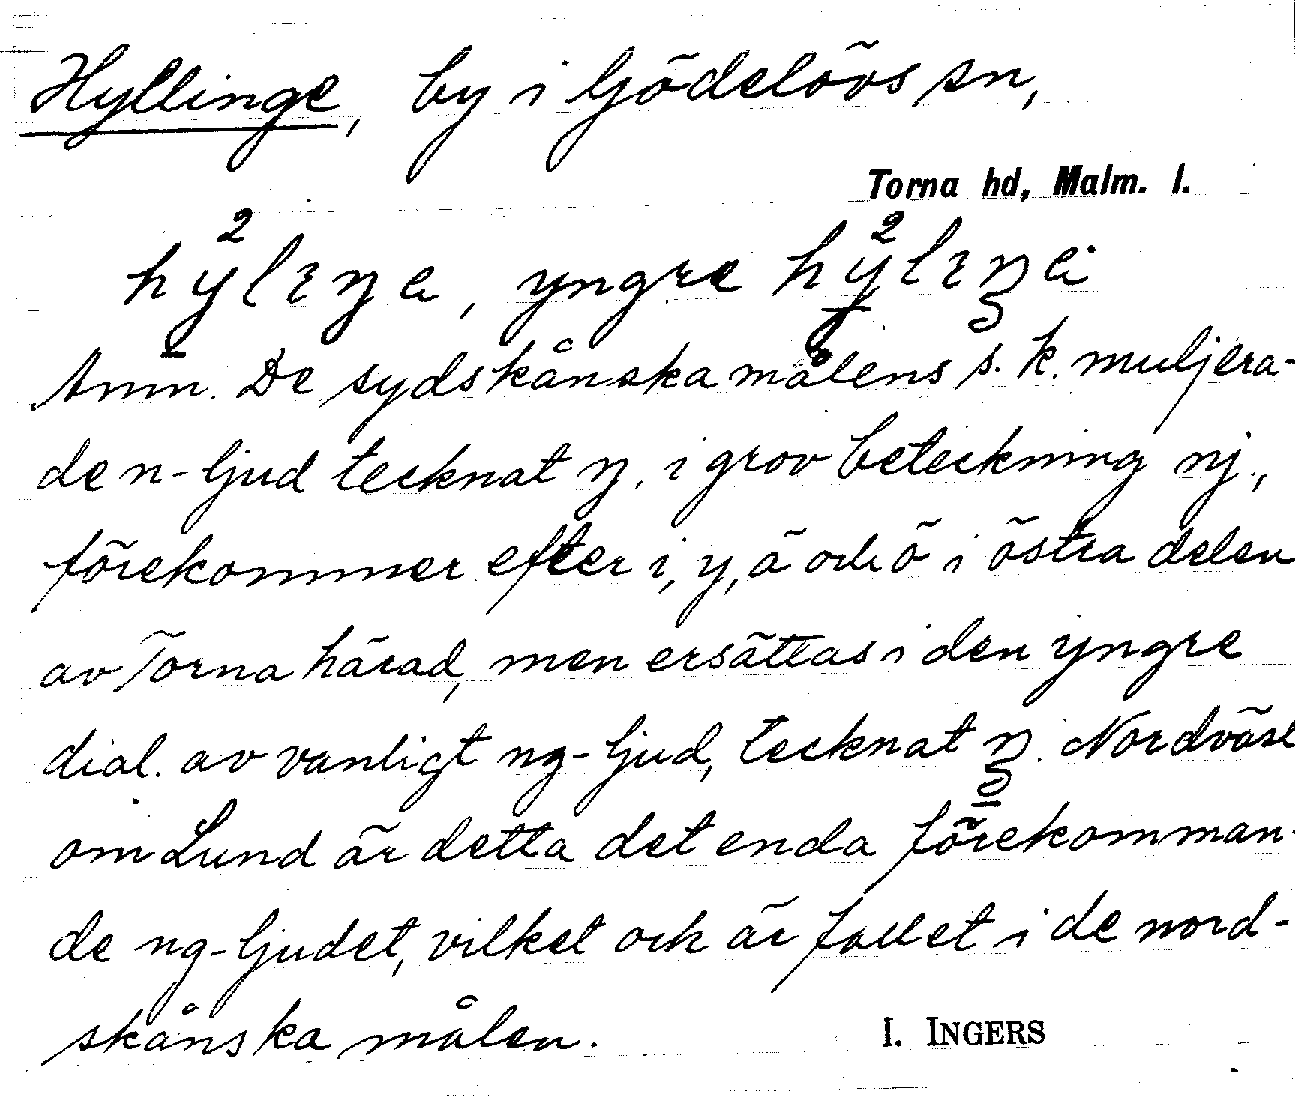 Hyllinge, by i Gödelövs sn,
Torna hd, Malm. l.
hy²lɪŋa, yngre hy²lɪŋa
Anm. De sydskånska målens s.k. muljera-
de n-ljud tecknat ŋ, i grov beteckning nj,
förekommer efter i, y, ä och ö i östra delen
av Torna härad, men ersättas i den yngre
dial. av vanligt ng-ljud, tecknat ŋ. Nordväst
om Lund är detta det enda förekomman-
de ng-ljudet, vilket och är fallet i de nord-
skånska målen.
I. INGERS